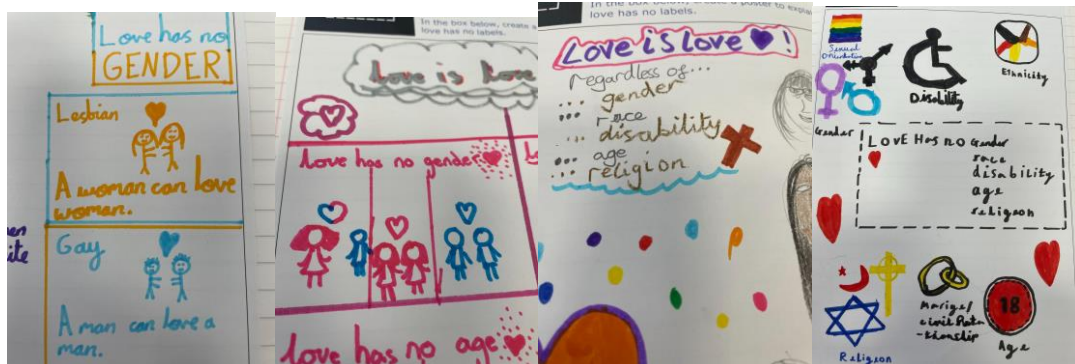 Love has no
GENDER
Lesbian
A woman can love
woman.
ite
Gay
A man can love a
man.
In the box below, create a
love has no labels.
Love is love
love has no gender
love has no age
In the box below, create a poster to expla
love has no labels.
Love is Love !
regardless of...
... gender
... race
... disability
... age
... religion
Sexual
Orientation
Disability
Ethnicity
Gender
LOVE HAS no Gender
race
disability
age
religeon
18
Age
Religeon